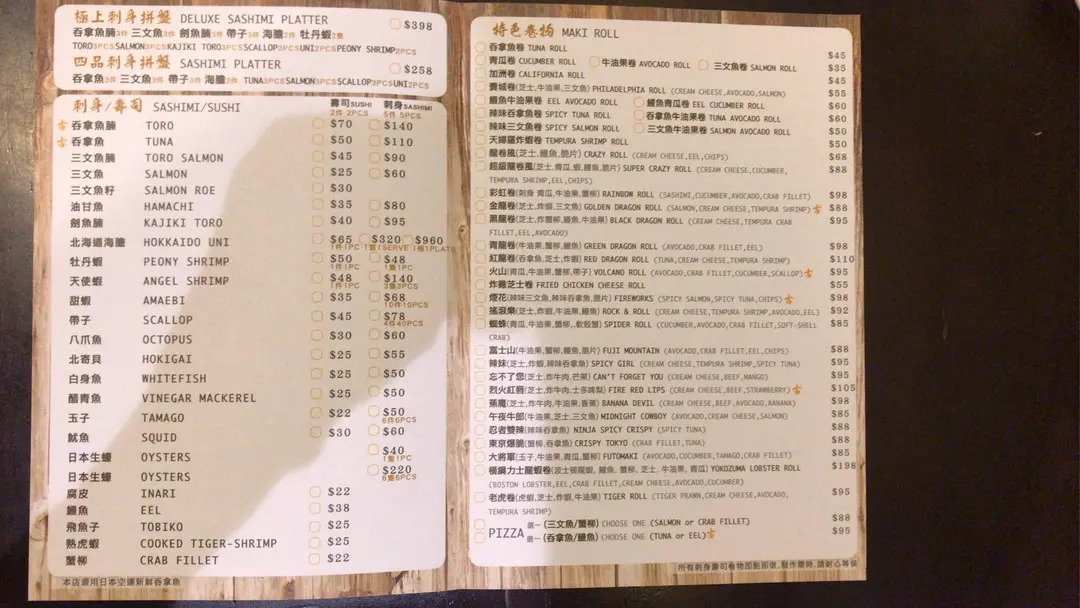 極上刺身拼盤 DELUXE SASHIMI PLATTER $398
吞拿魚腩3件 三文魚3件 劍魚腩3件 帶子3件 海膽2件 牡丹蝦2隻
TORO3PCS SALMON3PCS KAJIKI TORO3PCS SCALLOP3PCS UNI2PCS PEONY SHRIMP2PCS
四品刺身拼盤 SASHIMI PLATTER $258
吞拿魚3件 三文魚3件 帶子3件 海膽2件 TUNA3PCS SALMON3PCS SCALLOP3PCS UNI2PCS
刺身/壽司 SASHIMI/SUSHI 壽司SUSHI 刺身SASHIMI
2件 2PCS 5件 5PCS
吞拿魚腩 TORO $70 $140
吞拿魚 TUNA $50 $110
三文魚腩 TORO SALMON $45 $90
三文魚 SALMON $25 $60
三文魚籽 SALMON ROE $30
油甘魚 HAMACHI $35 $80
劍魚腩 KAJIKI TORO $40 $95
北海道海膽 HOKKAIDO UNI $65 $320 $960
1件1PC 1客1SERVE 1板1PLATE
牡丹蝦 PEONY SHRIMP $50 $48
1件1PC 1隻1PC
天使蝦 ANGEL SHRIMP $48 $140
1件1PC 3隻3PCS
甜蝦 AMAEBI $35 $68
10件10PCS
帶子 SCALLOP $45 $78
4件4PCS
八爪魚 OCTOPUS $30 $60
北寄貝 HOKIGAI $25 $55
白身魚 WHITEFISH $25 $50
醋青魚 VINEGAR MACKEREL $25 $50
玉子 TAMAGO $22 $50
6件6PCS
魷魚 SQUID $30 $60
日本生蠔 OYSTERS $40
1隻1PC
日本生蠔 OYSTERS $220
6隻6PCS
腐皮 INARI $22
鰻魚 EEL $38
飛魚子 TOBIKO $25
熟虎蝦 COOKED TIGER-SHRIMP $25
蟹柳 CRAB FILLET $22
本店選用日本空運新鮮吞拿魚
特色卷物 MAKI ROLL
吞拿魚卷 TUNA ROLL $45
青瓜卷 CUCUMBER ROLL 牛油果卷 AVOCADO ROLL 三文魚卷 SALMON ROLL $35
加洲卷 CALIFORNIA ROLL $45
費城卷(芝士,牛油果,三文魚) PHILADELPHIA ROLL (CREAM CHEESE,AVOCADO,SALMON) $55
鰻魚牛油果卷 EEL AVOCADO ROLL 鰻魚青瓜卷 EEL CUCUMBER ROLL $60
辣味吞拿魚卷 SPICY TUNA ROLL 吞拿魚牛油果卷 TUNA AVOCADO ROLL $60
辣味三文魚卷 SPICY SALMON ROLL 三文魚牛油果卷 SALMON AVOCADO ROLL $50
天婦羅炸蝦卷 TEMPURA SHRIMP ROLL $50
龍卷風(芝士,鰻魚,脆片) CRAZY ROLL (CREAM CHEESE,EEL,CHIPS) $68
超級龍卷風(芝士,青瓜,蝦,鰻魚,脆片) SUPER CRAZY ROLL (CREAM CHEESE,CUCUMBER, $88
TEMPURA SHRIMP,EEL,CHIPS)
彩虹卷(刺身 青瓜,牛油果,蟹柳) RAINBOW ROLL (SASHIMI,CUCUMBER,AVOCADO,CRAB FILLET) $98
金龍卷(芝士,炸蝦,三文魚) GOLDEN DRAGON ROLL (SALMON,CREAM CHEESE,TEMPURA SHRIMP) $88
黑龍卷(芝士,炸蟹柳,鰻魚,牛油果) BLACK DRAGON ROLL (CREAM CHEESE,TEMPURA CRAB $95
FILLET,EEL,AVOCADO)
青龍卷(牛油果,蟹柳,鰻魚) GREEN DRAGON ROLL (AVOCADO,CRAB FILLET,EEL) $98
紅龍卷(吞拿魚,芝士,炸蝦) RED DRAGON ROLL (TUNA,CREAM CHEESE,TEMPURA SHRIMP) $110
火山(青瓜,牛油果,蟹柳,帶子) VOLCANO ROLL (AVOCADO,CRAB FILLET,CUCUMBER,SCALLOP) $95
炸雞芝士卷 FRIED CHICKEN CHEESE ROLL $55
煙花(辣味三文魚,辣味吞拿魚,脆片) FIREWORKS (SPICY SALMON,SPICY TUNA,CHIPS) $98
搖滾樂(芝士,炸蝦,牛油果,鰻魚) ROCK & ROLL (CREAM CHEESE,TEMPURA SHRIMP,AVOCADO,EEL) $92
蜘蛛(青瓜,牛油果,蟹柳,軟殼蟹) SPIDER ROLL (CUCUMBER,AVOCADO,CRAB FILLET,SOFT-SHELL $85
CRAB)
富士山(牛油果,蟹柳,鰻魚,脆片) FUJI MOUNTAIN (AVOCADO,CRAB FILLET,EEL,CHIPS) $88
辣妹(芝士,炸蝦,辣味吞拿魚) SPICY GIRL (CREAM CHEESE,TEMPURA SHRIMP,SPICY TUNA) $95
忘不了您(芝士,炸牛肉,芒果) CAN'T FORGET YOU (CREAM CHEESE,BEEF,MANGO) $95
烈火紅唇(芝士,炸牛肉,士多啤梨) FIRE RED LIPS (CREAM CHEESE,BEEF,STRAWBERRY) $105
蕉魔(芝士,炸牛肉,牛油果,香蕉) BANANA DEVIL (CREAM CHEESE,BEEF,AVOCADO,BANANA) $98
午夜牛郎(牛油果,芝士,三文魚) MIDNIGHT COWBOY (AVOCADO,CREAM CHEESE,SALMON) $85
忍者雙辣(辣味吞拿魚) NINJA SPICY CRISPY (SPICY TUNA) $88
東京爆脆(蟹柳,吞拿魚) CRISPY TOKYO (CRAB FILLET,TUNA) $88
大將軍(玉子,牛油果,青瓜,蟹柳) FUTOMAKI (AVOCADO,CUCUMBER,TAMAGO,CRAB FILLET) $85
橫鋼力士龍蝦卷(波士頓龍蝦, 鰻魚, 蟹柳, 芝士, 牛油果, 青瓜) YUKOZUMA LOBSTER ROLL $198
(BOSTON LOBSTER,EEL,CRAB FILLET,CREAM CHEESE,AVOCADO,CUCUMBER)
老虎卷(虎蝦,芝士,炸蝦,牛油果) TIGER ROLL (TIGER PRAWN,CREAM CHEESE,AVOCADO, $95
TEMPURA SHRIMP)
PIZZA 選一 (三文魚/蟹柳) CHOOSE ONE (SALMON or CRAB FILLET) $88
選一 (吞拿魚/鰻魚) CHOOSE ONE (TUNA or EEL) $95
所有刺身壽司卷物即點即做,製作需時,請耐心等候